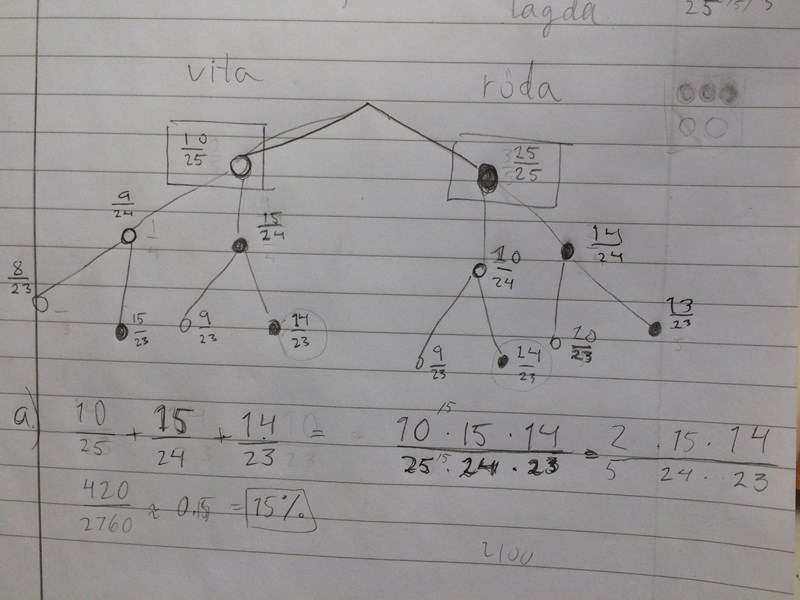 lagda
25
vita
röda
10/25
25/25
9/24
15/24
10/24
14/24
8/23
15/23
9/23
14/23
9/23
14/23
10/23
13/23
a) 10/25 + 15/24 + 14/23 = 10 · 15 · 14 / 25 · 24 · 23 = 2/5 · 15 · 14 / 24 · 23
420/2760 ≈ 0.15 = 15%
2100